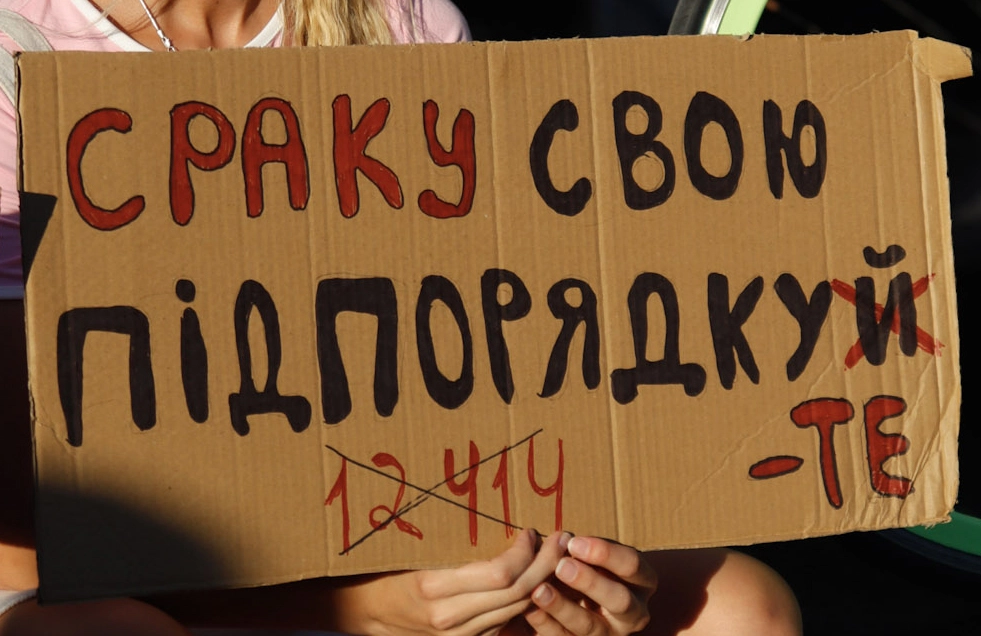 СРАКУ СВОЮ
ПіДПОРЯДКУЙ
-ТЕ
12414